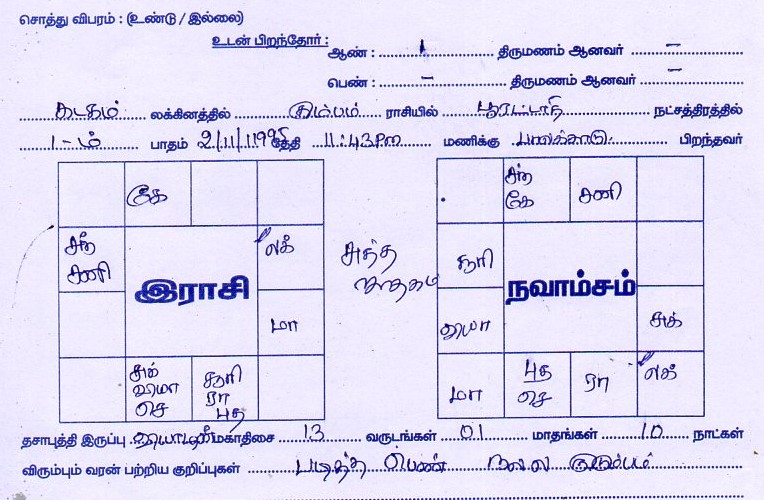 சொத்து விபரம் : (உண்டு / இல்லை)
உடன் பிறந்தோர் : ஆண் : 1 திருமணம் ஆனவர் –
பெண் : – திருமணம் ஆனவர் –
கடகம் லக்கினத்தில் கும்பம் ராசியில் பூரட்டாதி நட்சத்திரத்தில்
1-ம் பாதம் 2/11/1995 தேதி 11:43 PM மணிக்கு பாலக்காடு பிறந்தவர்
கே
சந் சனி
லக்
இராசி
மா
சுக் வியா செ
சூரி ரா புத
சுத்த ஜாதகம்
சந் கே
சனி
சூரி
நவாம்சம்
வியா
சுக்
மா
புத செ
ரா
லக்
தசாபுத்தி இருப்பு வியாழன் மகாதிசை 13 வருடங்கள் 01 மாதங்கள் 10 நாட்கள்
விரும்பும் வரன் பற்றிய குறிப்புகள் படித்த பெண் நல்ல குடும்பம்